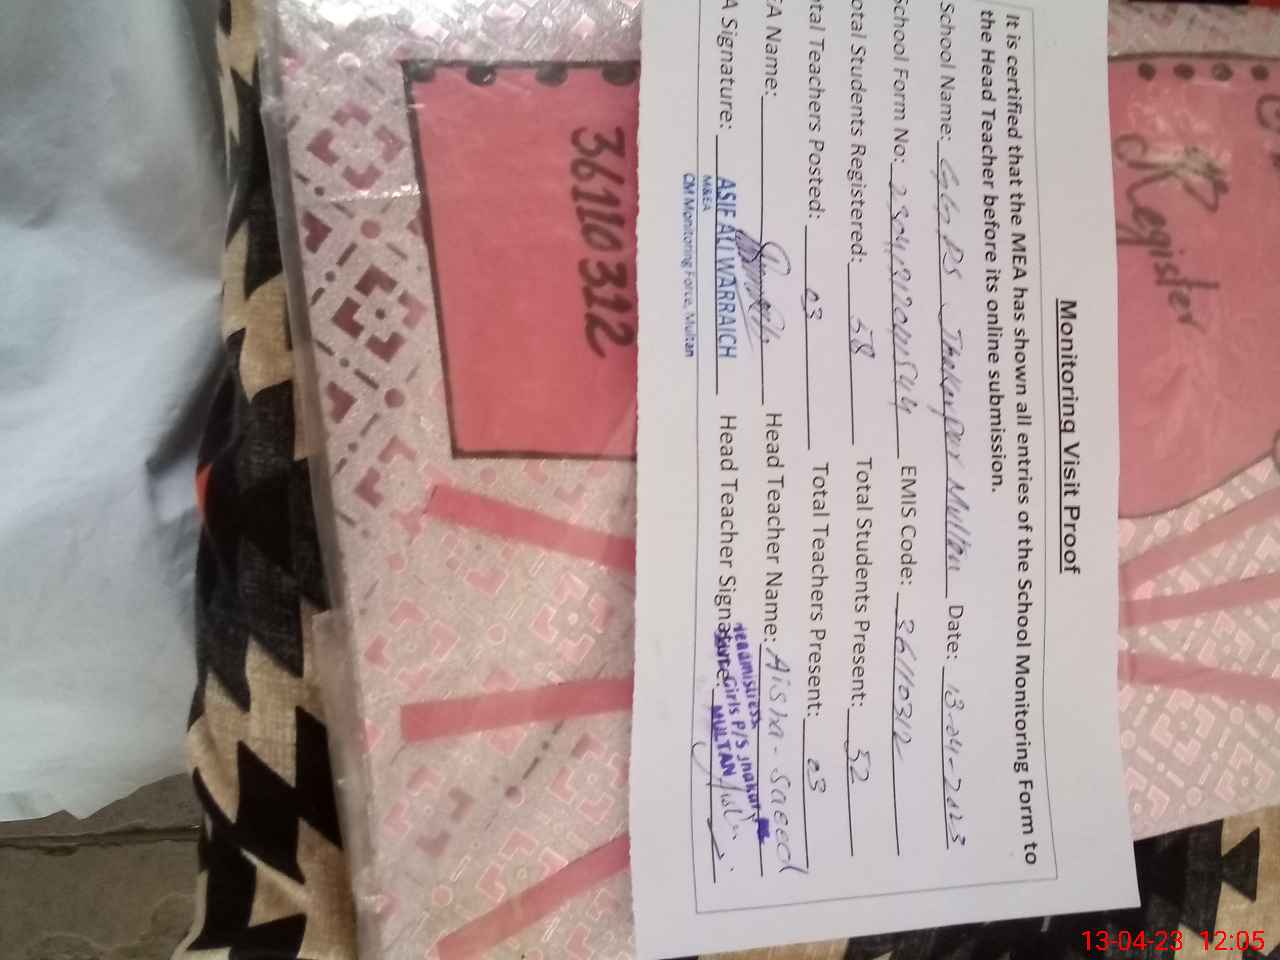 Register
36110312
Monitoring Visit Proof
It is certified that the MEA has shown all entries of the School Monitoring Form to
the Head Teacher before its online submission.
School Name: PS Multan Date: 13-04-2023
School Form No: EMIS Code: 36110312
otal Students Registered: 58 Total Students Present: 52
tal Teachers Posted: 03 Total Teachers Present: 03
EA Name: Head Teacher Name: Aisha-Saeed
A Signature: Head Teacher Signature:
ASIF ALI WARRAICH
M&EA
CM Monitoring Force, Multan
Headmistress
Girls P/S
MULTAN
13-04-23 12:05